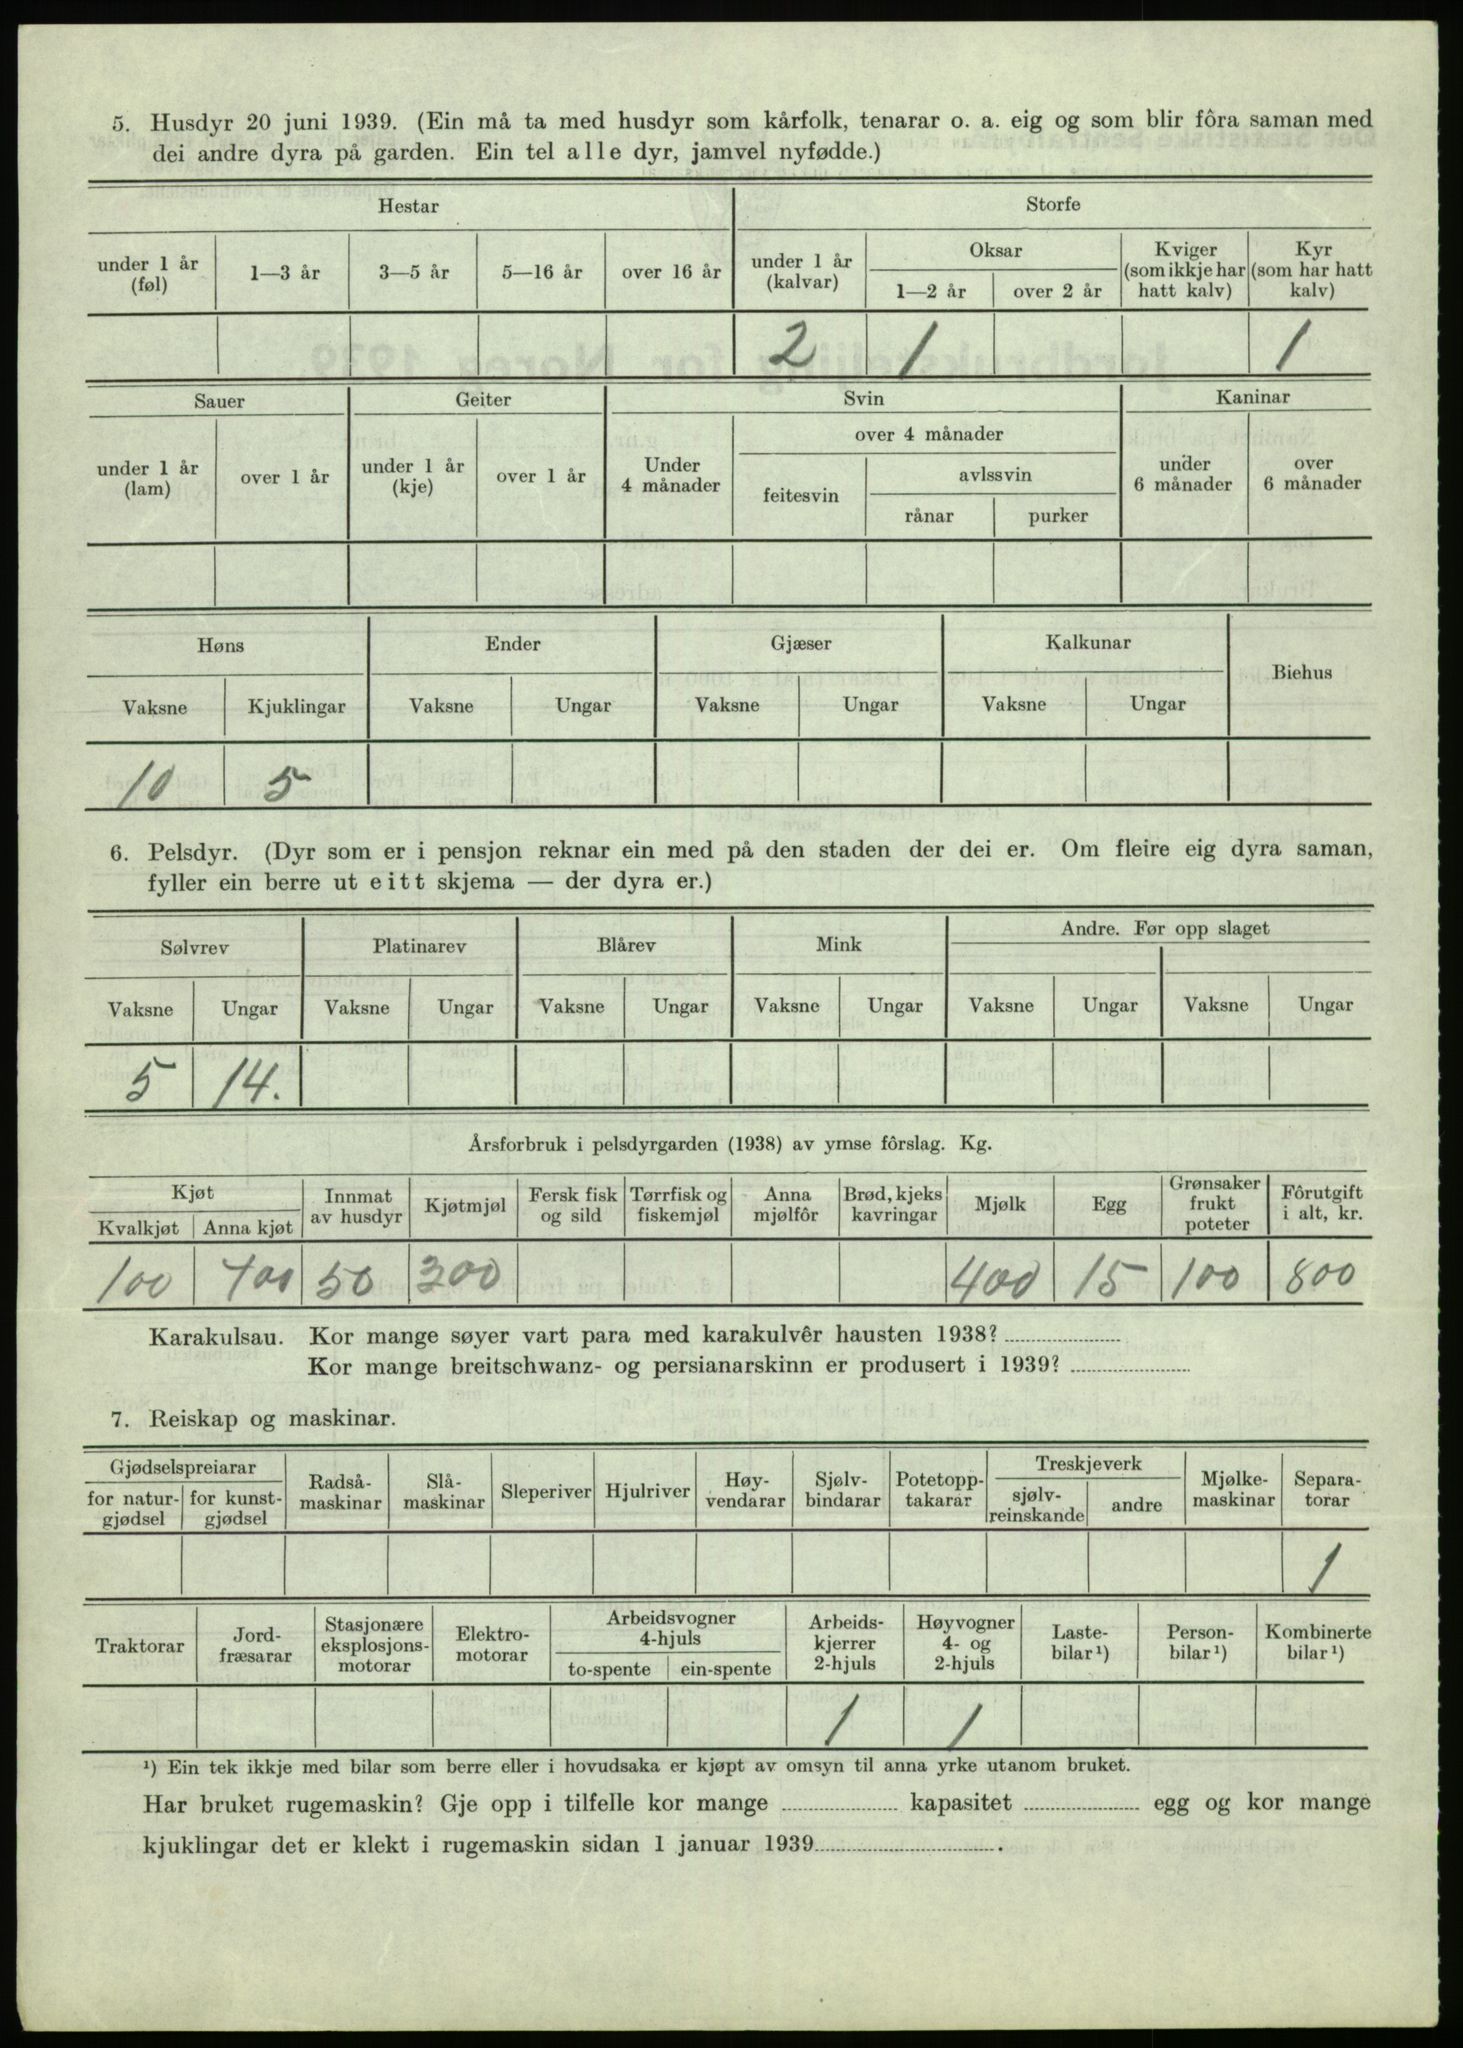 5. Husdyr 20 juni 1939. (Ein må ta med husdyr som kårfolk, tenarar o. a. eig og som blir fôra saman med
dei andre dyra på garden. Ein tel alle dyr, jamvel nyfødde.)
Hestar Storfe
under 1 år (føl) 1—3 år 3—5 år 5—16 år over 16 år under 1 år (kalvar) Oksar 1—2 år over 2 år Kviger (som ikkje har hatt kalv) Kyr (som har hatt kalv)
2 1 1
Sauer Geiter Svin Kaninar
under 1 år (lam) over 1 år under 1 år (kje) over 1 år Under 4 månader over 4 månader feitesvin avlssvin rånar purker under 6 månader over 6 månader
Høns Ender Gjæser Kalkunar Biehus
Vaksne Kjuklingar Vaksne Ungar Vaksne Ungar Vaksne Ungar
10 5
6. Pelsdyr. (Dyr som er i pensjon reknar ein med på den staden der dei er. Om fleire eig dyra saman,
fyller ein berre ut eitt skjema — der dyra er.)
Sølvrev Platinarev Blårev Mink Andre. Før opp slaget
Vaksne Ungar Vaksne Ungar Vaksne Ungar Vaksne Ungar Vaksne Ungar Vaksne Ungar
5 14.
Årsforbruk i pelsdyrgarden (1938) av ymse fôrslag. Kg.
Kjøt Kvalkjøt Anna kjøt Innmat av husdyr Kjøtmjøl Fersk fisk og sild Tørrfisk og fiskemjøl Anna mjølfôr Brød, kjeks kavringar Mjølk Egg Grønsaker frukt poteter Fôrutgift i alt, kr.
100 400 50 300 400 15 100 800
Karakulsau. Kor mange søyer vart para med karakulvêr hausten 1938?
Kor mange breitschwanz- og persianarskinn er produsert i 1939?
7. Reiskap og maskinar.
Gjødselspreiarar for natur-gjødsel for kunst-gjødsel Radså-maskinar Slå-maskinar Sleperiver Hjulriver Høy-vendarar Sjølv-bindarar Potetopp-takarar Treskjeverk sjølv-reinskande andre Mjølke-maskinar Separa-torar
1
Traktorar Jord-fræsarar Stasjonære eksplosjons-motorar Elektro-motorar Arbeidsvogner 4-hjuls to-spente ein-spente Arbeids-kjerrer 2-hjuls Høyvogner 4- og 2-hjuls Laste-bilar¹) Person-bilar¹) Kombinerte bilar¹)
1 1
¹) Ein tek ikkje med bilar som berre eller i hovudsaka er kjøpt av omsyn til anna yrke utanom bruket.
Har bruket rugemaskin? Gje opp i tilfelle kor mange kapasitet egg og kor mange
kjuklingar det er klekt i rugemaskin sidan 1 januar 1939 .